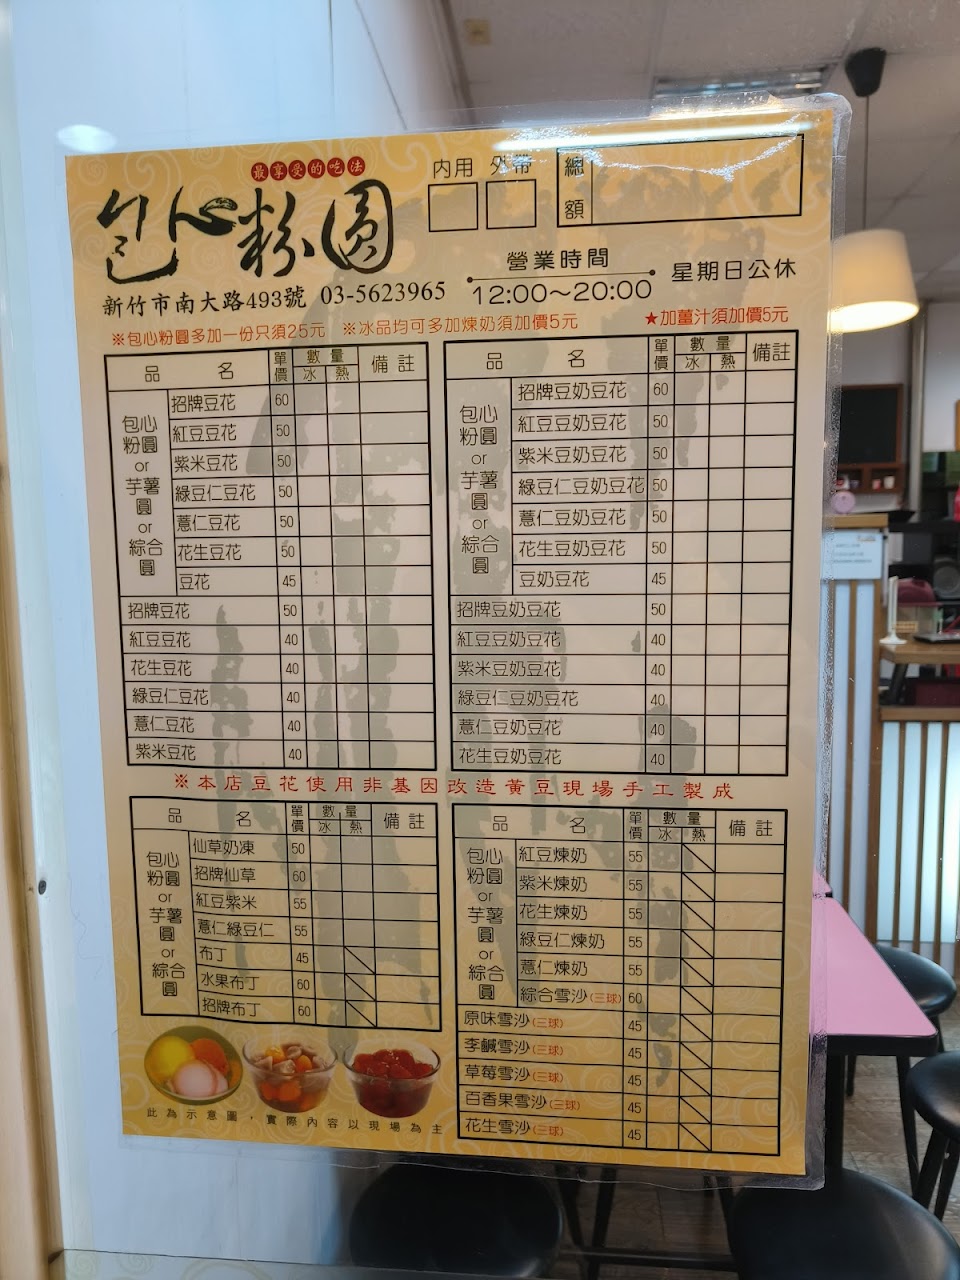 最享受的吃法
包心粉圓
內用 外帶 總額
營業時間
12:00～20:00
星期日公休
新竹市南大路493號 03-5623965
※包心粉圓多加一份只須25元 ※冰品均可多加煉奶須加價5元 ★加薑汁須加價5元
品名 單價 數量 冰 熱 備註
包心粉圓or芋薯圓or綜合圓
招牌豆花 60
紅豆豆花 50
紫米豆花 50
綠豆仁豆花 50
薏仁豆花 50
花生豆花 50
豆花 45
招牌豆花 50
紅豆豆花 40
花生豆花 40
綠豆仁豆花 40
薏仁豆花 40
紫米豆花 40
品名 單價 數量 冰 熱 備註
包心粉圓or芋薯圓or綜合圓
招牌豆奶豆花 60
紅豆豆奶豆花 50
紫米豆奶豆花 50
綠豆仁豆奶豆花 50
薏仁豆奶豆花 50
花生豆奶豆花 50
豆奶豆花 45
招牌豆奶豆花 50
紅豆豆奶豆花 40
紫米豆奶豆花 40
綠豆仁豆奶豆花 40
薏仁豆奶豆花 40
花生豆奶豆花 40
※本店豆花使用非基因改造黃豆現場手工製成
品名 單價 數量 冰 熱 備註
包心粉圓or芋薯圓or綜合圓
仙草奶凍 50
招牌仙草 60
紅豆紫米 55
薏仁綠豆仁 55
布丁 45
水果布丁 60
招牌布丁 60
品名 單價 數量 冰 熱 備註
包心粉圓or芋薯圓or綜合圓
紅豆煉奶 55
紫米煉奶 55
花生煉奶 55
綠豆仁煉奶 55
薏仁煉奶 55
綜合雪沙(三球) 60
原味雪沙(三球) 45
李鹹雪沙(三球) 45
草莓雪沙(三球) 45
百香果雪沙(三球) 45
花生雪沙(三球) 45
此為示意圖，實際內容以現場為主